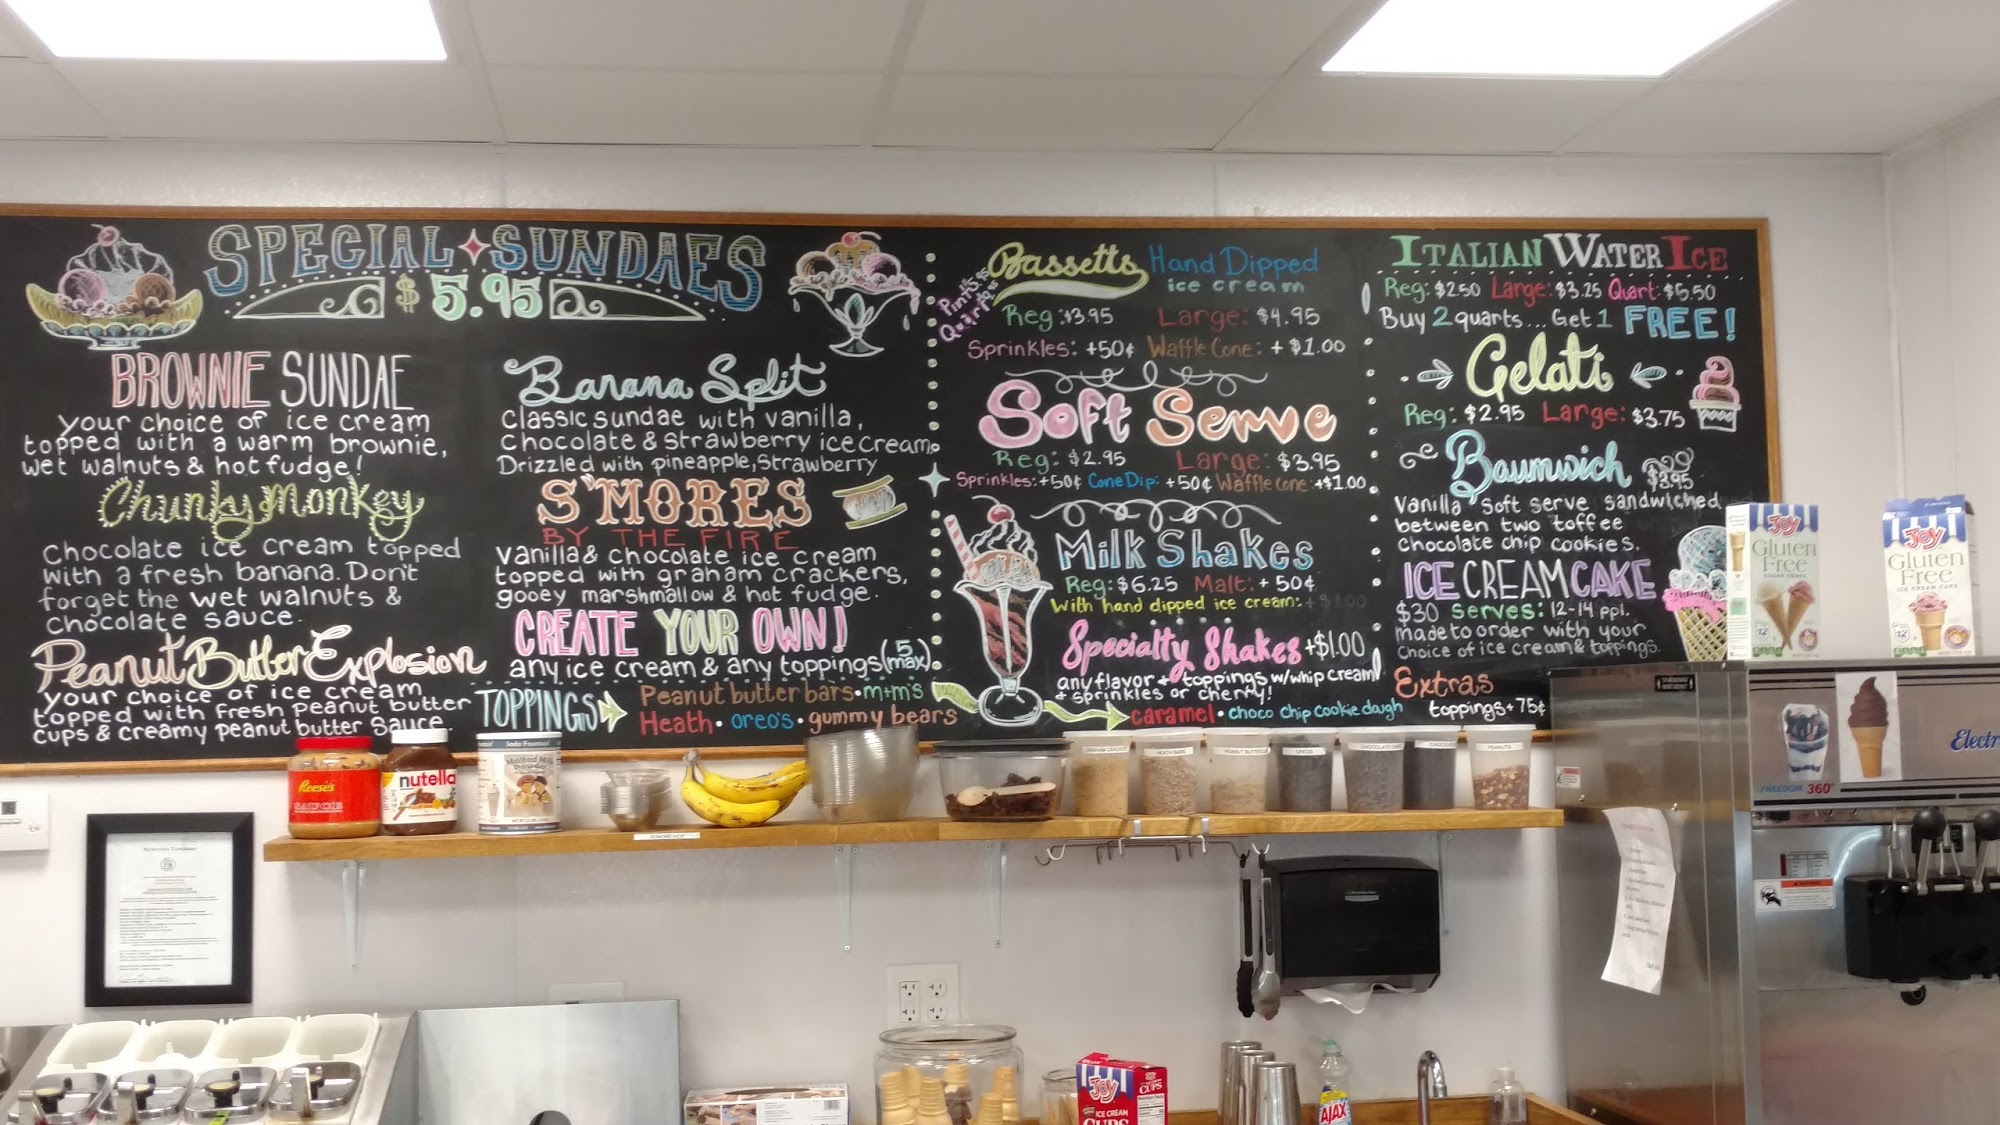 SPECIAL SUNDAES
$ 5.95
BROWNIE SUNDAE
your choice of ice cream
topped with a warm brownie,
wet walnuts & hot fudge!
Chunky Monkey
Chocolate ice cream topped
with a fresh banana. Don't
forget the wet walnuts &
chocolate sauce.
Peanut Butter Explosion
your choice of ice cream
topped with fresh peanut butter
cups & creamy peanut butter sauce
Banana Split
Classic sundae with vanilla,
Chocolate & strawberry ice cream.
Drizzled with pineapple, strawberry
S'MORES
BY THE FIRE
Vanilla & chocolate ice cream
topped with graham crackers,
gooey marshmallow & hot fudge.
CREATE YOUR OWN!
any ice cream & any toppings (5 max).
TOPPINGS
Peanut butter bars • m+m's
Heath • oreo's • gummy bears
caramel • choco chip cookie dough
Bassetts Hand Dipped
ice cream
Reg: $3.95 Large: $4.95
Sprinkles: +50¢ Waffle Cone: + $1.00
Soft Serve
Reg: $2.95 Large: $3.95
Sprinkles: +50¢ Cone Dip: +50¢ Waffle cone: +$1.00
Milk Shakes
Reg: $6.25 Malt: + 50¢
With hand dipped ice cream: +$1.00
Specialty Shakes +$1.00
any flavor + toppings w/whip cream
+ sprinkles or cherry!
ITALIAN WATER ICE
Reg: $2.50 Large: $3.25 Quart: $5.50
Buy 2 quarts... Get 1 FREE!
Gelati
Reg: $2.95 Large: $3.75
Baumwich $3.95
Vanilla soft serve sandwiched
between two toffee
chocolate chip cookies.
ICE CREAM CAKE
$30 serves: 12-14 ppl.
made to order with your
choice of ice cream & toppings.
Extras
toppings + 75¢
JOY
Gluten
Free
SUGAR CONES
12
JOY
Gluten
Free
ICE CREAM CUPS
12
Reese's
SAUCE
nutella
Malted Milk
Powder
HEATH BARS
OREOS
PEANUTS
FREEDOM 360°
Electr
JOY
ICE CREAM
CUPS
CUPS
AJAX